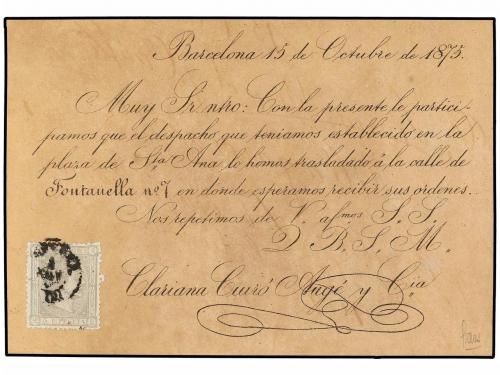 Barcelona 15 de Octubre de 1875.
Muy Sr. ntro: Con la presente le partici-
pamos que el despacho que teniamos establecido en la
plaza de Sta. Ana le hemos trasladado á la calle de
Fontanella nº 7 en donde esperamos recibir sus ordenes.
Nos repetimos de V. afmos S. S.
Q. B. S. M.
Clariana Cuiró Augé y Cia